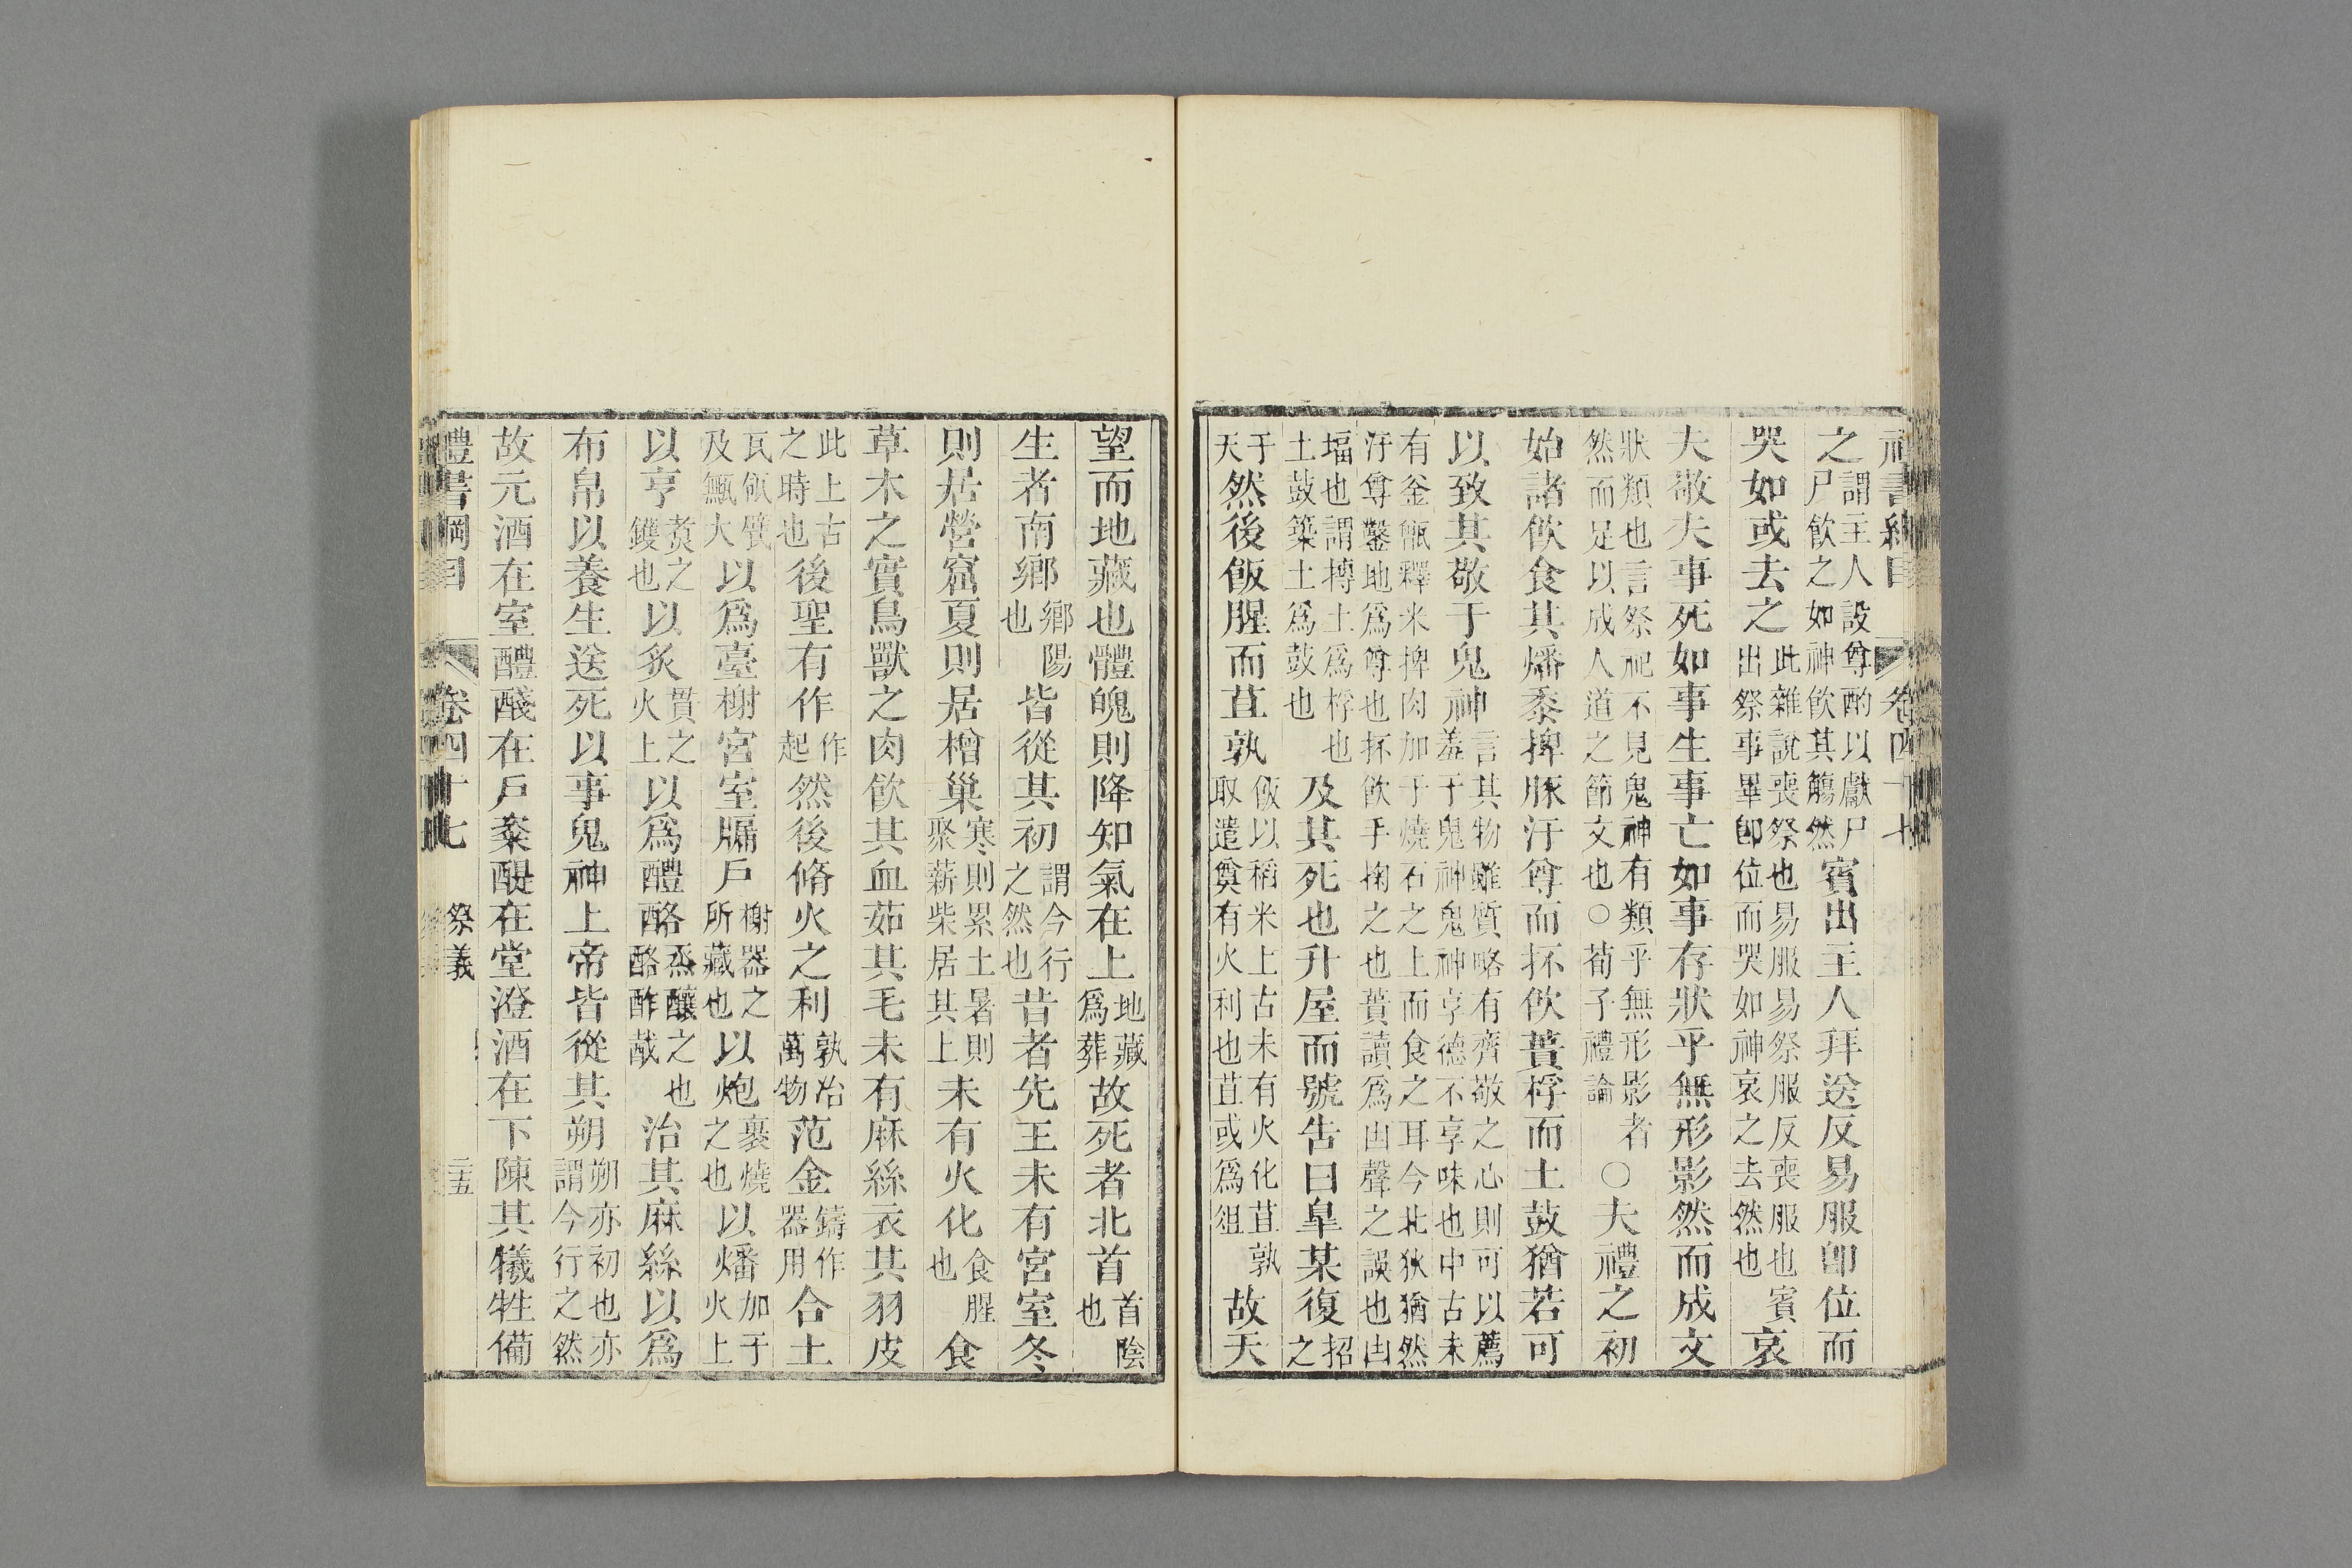 禮書綱目 卷四十七
之謂主人設尊酌以獻尸尸飲之如神飲其觴然賓出主人拜送反易服卽位而
哭如或去之此雜說喪祭也易服易祭服反喪服也賓出祭事畢卽位而哭如神哀之去然也哀
夫敬夫事死如事生事亡如事存狀乎無形影然而成文
狀類也言祭祀不見鬼神有類乎無形影者然而足以成人道之節文也○荀子禮論○夫禮之初
始諸飲食其燔黍捭豚汙尊而抔飲蕢桴而土鼓猶若可
以致其敬于鬼神言其物雖質略有齊敬之心則可以薦羞于鬼神鬼神享德不享味也中古未
有釜甑釋米捭肉加于燒石之上而食之耳今北狄猶然汙尊鑿地爲尊也抔飲手掬之也蕢讀爲凷聲之誤也凷
堛也謂摶土爲桴也土鼓築土爲鼓也及其死也升屋而號告曰皐某復招之
于天然後飯腥而苴孰飯以稻米上古未有火化苴孰取遣奠有火利也苴或爲俎故天
望而地藏也體魄則降知氣在上地藏爲葬故死者北首首陰也
生者南鄉鄉陽也皆從其初謂今行之然也昔者先王未有宮室冬
則居營窟夏則居橧巢寒則累土暑則聚薪柴居其上未有火化食腥也食
草木之實鳥獸之肉飲其血茹其毛未有麻絲衣其羽皮
此上古之時也後聖有作作起然後脩火之利孰冶萬物范金鑄作器用合土
瓦瓴甓及甒大以爲臺榭宮室牖戶榭器之所藏也以炮裹燒之也以燔加于火上
以亨煑之鑊也以炙貫之火上以爲醴酪烝釀之也酪酢酨治其麻絲以爲
布帛以養生送死以事鬼神上帝皆從其朔朔亦初也亦謂今行之然
故元酒在室醴醆在戶粢醍在堂澄酒在下陳其犧牲備
禮書綱目 卷四十七 祭義 二五